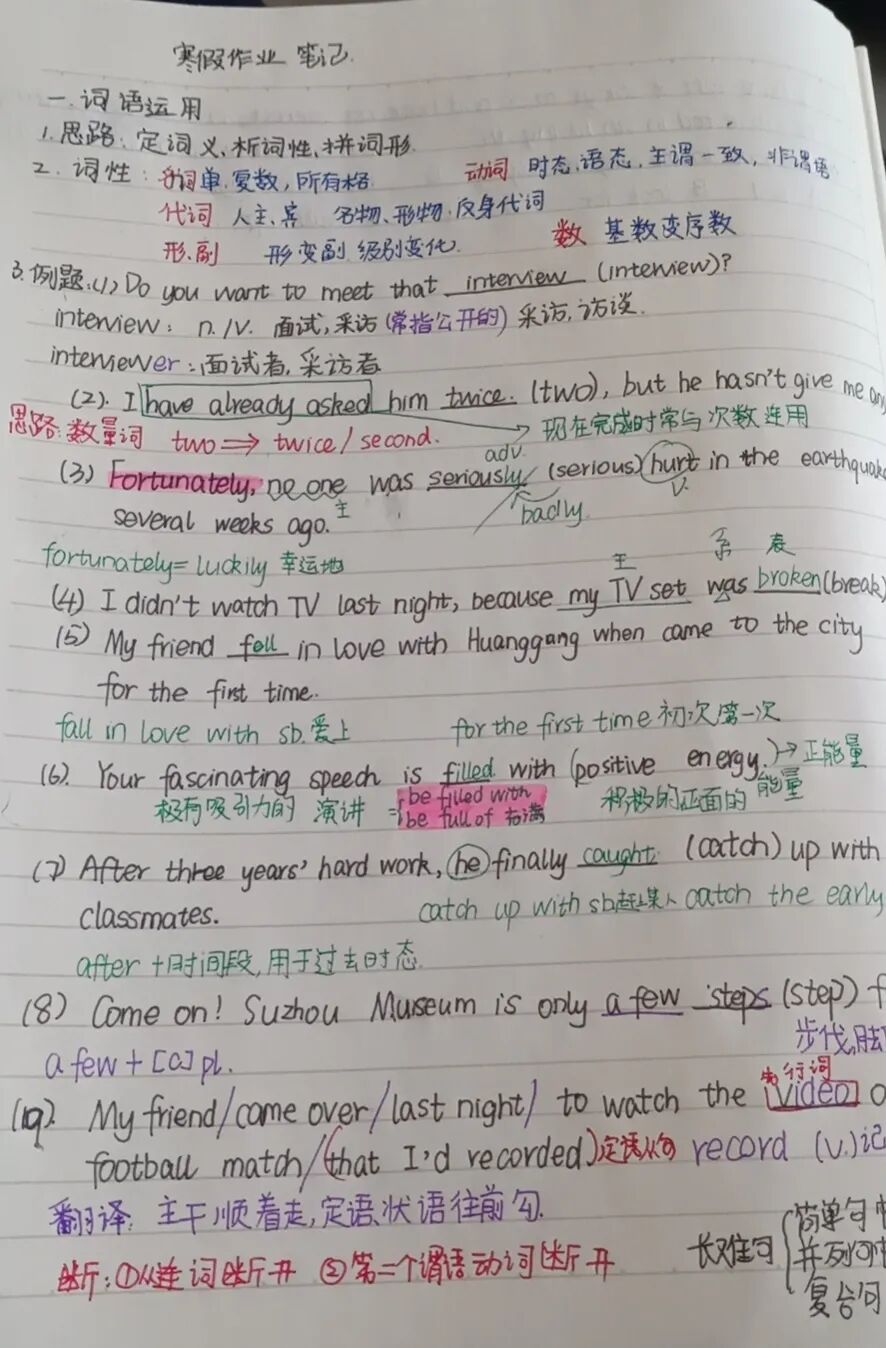 寒假作业 笔记.
一.词语运用
1.思路:定词义、析词性、拼词形.
2. 词性:名词 单.复数,所有格 动词 时态,语态,主谓一致,非谓语
代词 人主、宾 名物、形物、反身代词
形.副 形变副 级别变化. 数 基数变序数
3.例题:(1) Do you want to meet that interview (interview)?
interview: n./v. 面试,采访(常指公开的)采访,访谈.
interviewer:面试者,采访者
(2). I have already asked him twice. (two), but he hasn't give me
思路:数量词 two ⇒ twice/second. 现在完成时常与次数连用
adv.
(3) Fortunately, no one was seriously (serious) hurt in the earthquake
主 badly v.
several weeks ago.
fortunately= luckily 幸运地 主 系 表
(4) I didn't watch TV last night, because my TV set was broken(break)
(5) My friend fell in love with Huanggang when came to the city
for the first time.
fall in love with sb.爱上 for the first time 初次第一次
(6). Your fascinating speech is filled with (positive energy.)→正能量
极有吸引力的 演讲 = be filled with 积极的正面的 能量
be full of 充满
(7) After three years' hard work, he finally caught (catch) up with
classmates. catch up with sb.赶上某人 catch the early
after +时间段,用于过去时态.
(8) Come on! Suzhou Museum is only a few steps (step)
a few + [C] pl. 步伐,
先行词
My friend/came over/last night/ to watch the video
football match/(that I'd recorded)定语从句 record (v.)记
翻译:主干顺着走,定语,状语往前勾.
断:①从连词断开 ②第二个谓语动词断开 长难句 简单句
并列句
复合句